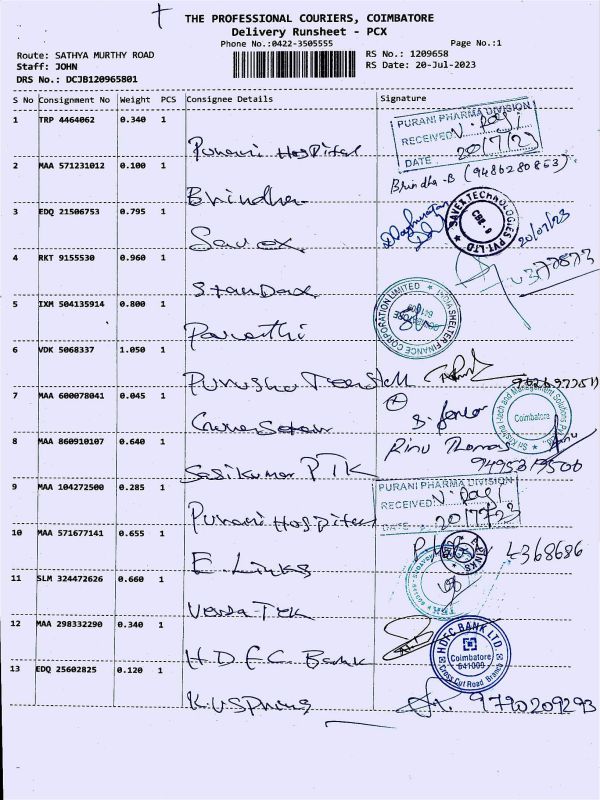 THE PROFESSIONAL COURIERS, COIMBATORE
Delivery Runsheet - PCX
Phone No.:0422-3505555
Page No.:1
Route: SATHYA MURTHY ROAD
RS No.: 1209658
Staff: JOHN
RS Date: 20-Jul-2023
DRS No.: DCJB120965801
S No Consignment No Weight PCS Consignee Details Signature
1 TRP 4464062 0.340 1 Purani Hospital
PURANI PHARMA DIVISION
RECEIVED
DATE 20/7/23
2 MAA 571231012 0.100 1 Brindha
Brindha-B (9486280853)
3 EDQ 21506753 0.795 1 Savex
SAVEX TECHNOLOGIES PVT LTD
20/07/23
4 RKT 9155530 0.960 1
5 IXM 504135914 0.800 1
INDIA SHELTER FINANCE CORPORATION LIMITED
6 VDK 5068337 1.050 1
7 MAA 600078041 0.045 1
Coimbatore
8 MAA 860910107 0.640 1 Sasikumar PTK
Rinu Thomas
9 MAA 104272500 0.285 1 Purani Hospital
PURANI PHARMA DIVISION
RECEIVED
DATE 20/7/23
10 MAA 571677141 0.655 1 E. Links
11 SLM 324472626 0.660 1 Versa-Tek
12 MAA 298332290 0.340 1 HDFC Bank
HDFC BANK LTD.
Coimbatore
641009
Cross Cut Road Branch
13 EDQ 25602825 0.120 1
9790209293